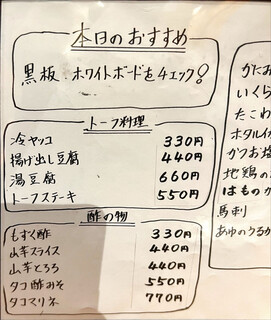 本日のおすすめ
黒板 ホワイトボードをチェック!
トーフ料理
冷ヤッコ 330円
揚げ出し豆腐 440円
湯豆腐 660円
トーフステーキ 550円
酢の物
もずく酢 330円
山芋スライス 440円
山芋とろろ 440円
タコ酢みそ 550円
タコマリネ 770円
かにお
いくら
たこわ
ホタルイ
かつお酒
地鶏の
はものか
馬刺
あゆのうるか